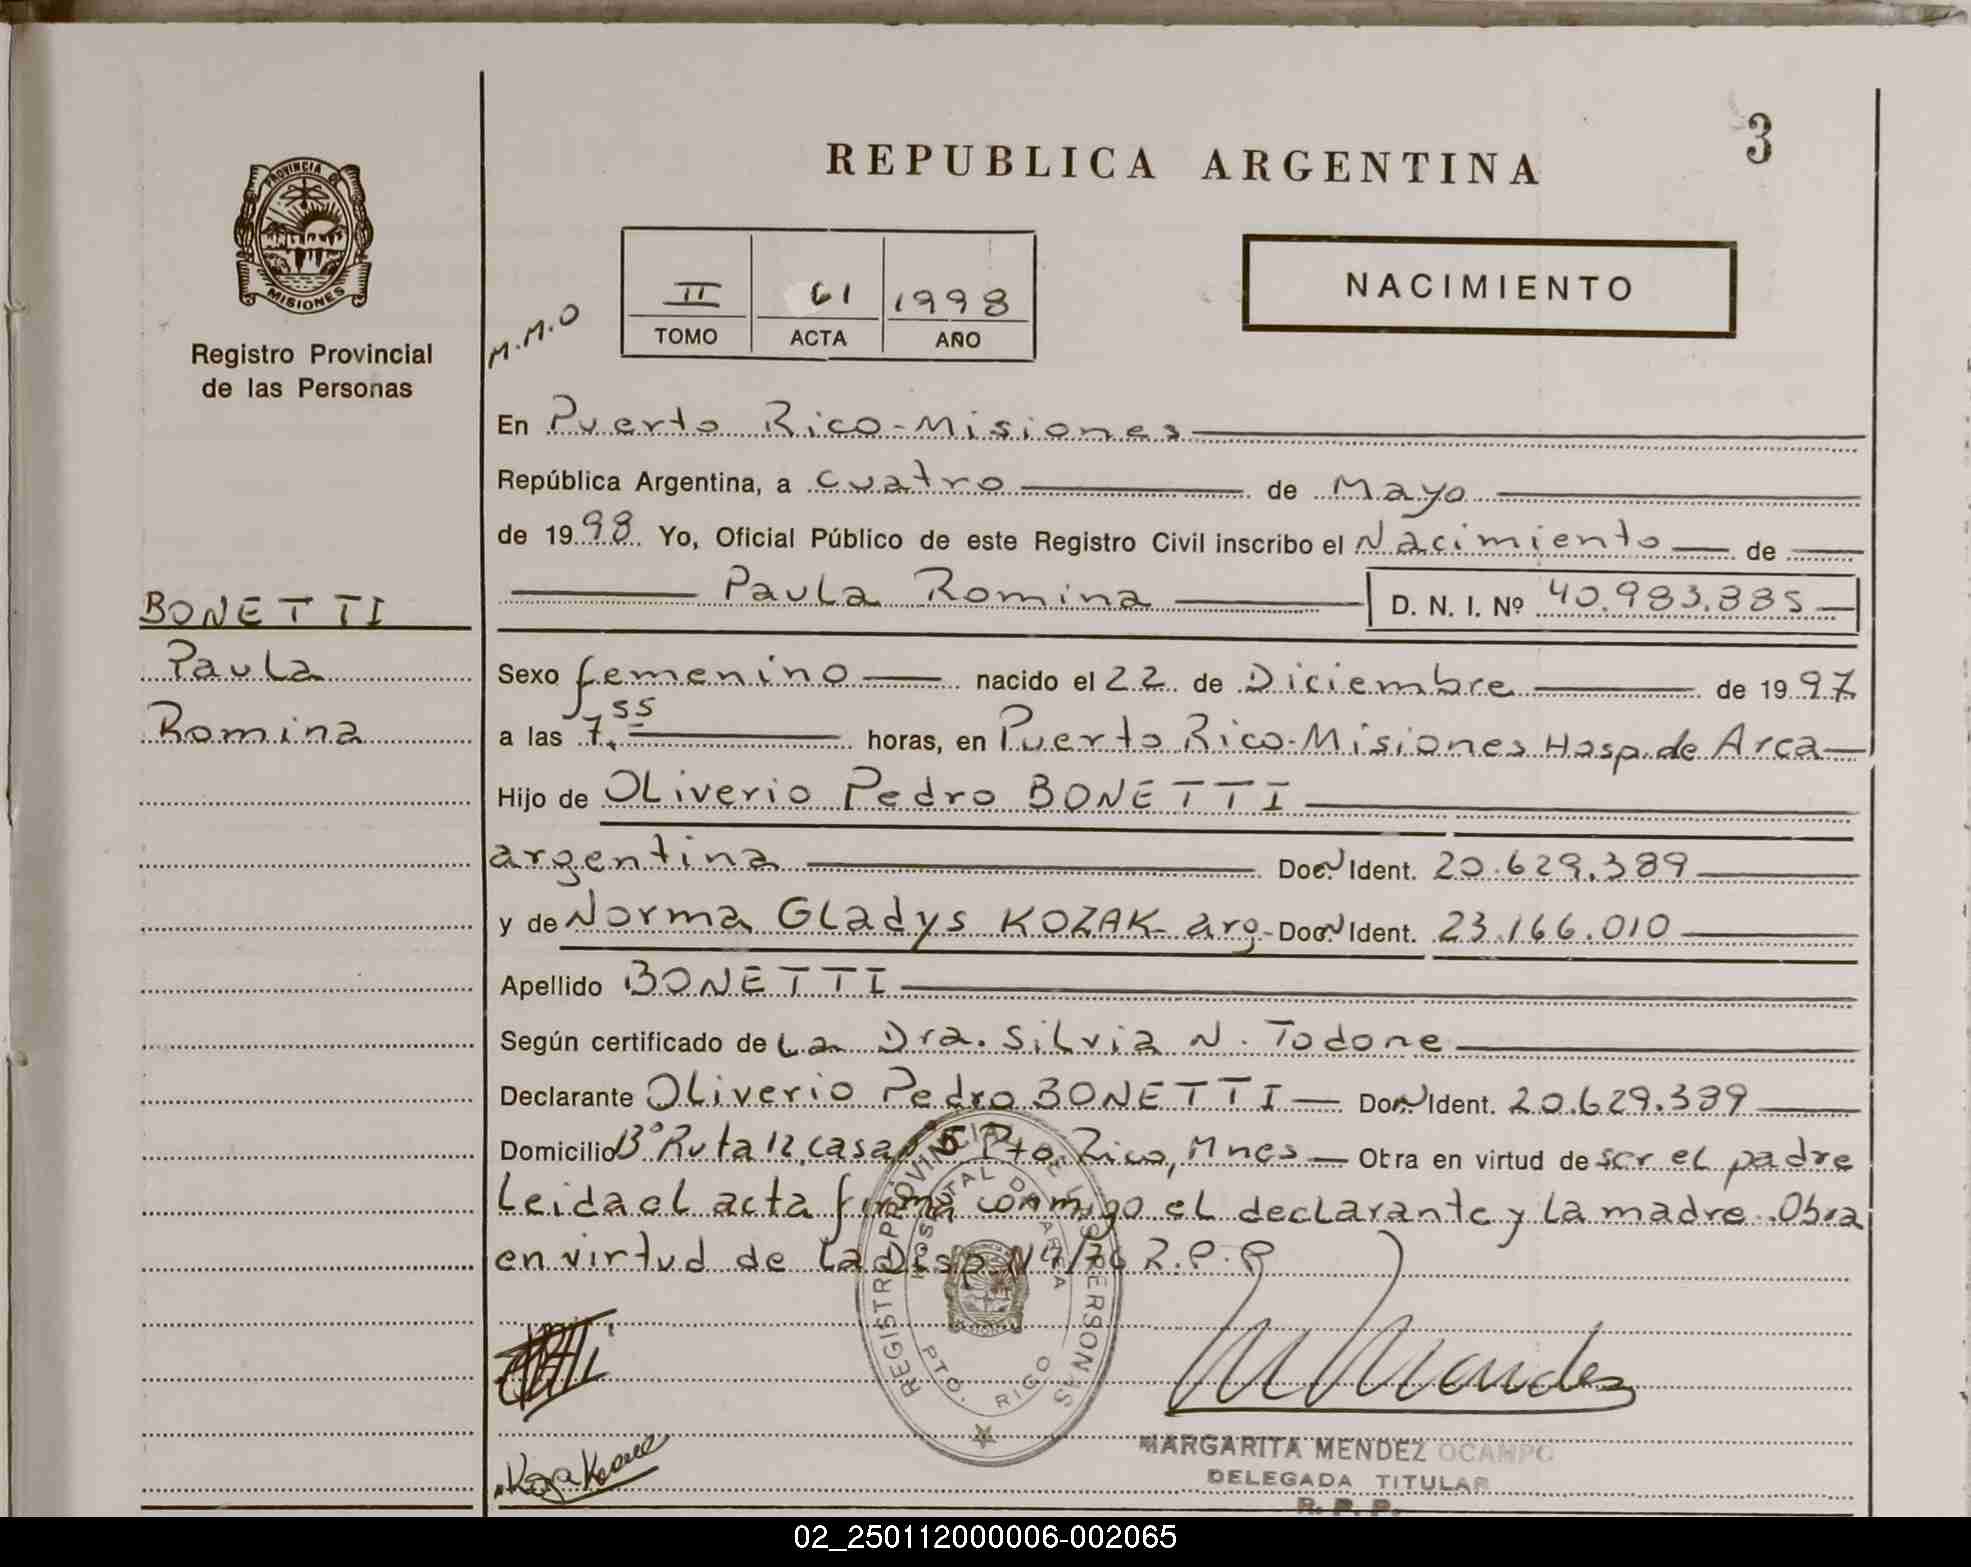 REPUBLICA ARGENTINA
3
PROVINCIA DE
MISIONES
Registro Provincial
de las Personas
M.M.O
II 61 1998
TOMO ACTA AÑO
NACIMIENTO
En Puerto Rico-Misiones
República Argentina, a cuatro de Mayo
de 1998. Yo, Oficial Público de este Registro Civil inscribo el Nacimiento de
Paula Romina D. N. I. Nº 40.983.885
BONETTI
Paula
Romina
Sexo femenino nacido el 22 de Diciembre de 1997
a las 7.55 horas, en Puerto Rico-Misiones Hosp. de Area
Hijo de Oliverio Pedro BONETTI
argentina Doc. N Ident. 20.629.389
y de Norma Gladys KOZAK- arg- Doc. N Ident. 23.166.010
Apellido BONETTI
Según certificado de La Dra. Silvia N. Todone
Declarante Oliverio Pedro BONETTI Doc. N Ident. 20.629.389
Domicilio Bº Ruta 12, casa Pto. Rico, Mnes Obra en virtud de ser el padre
Leida el acta firma conmigo el declarante y la madre. Obra
en virtud de la Disp. N 4/76 R.P.P
REGISTRO PROVINCIAL DE LAS PERSONAS
HOSPITAL DE AREA
PTO. RICO
M Mendez
MARGARITA MENDEZ OCAMPO
DELEGADA TITULAR
R. P. P.
02_250112000006-002065